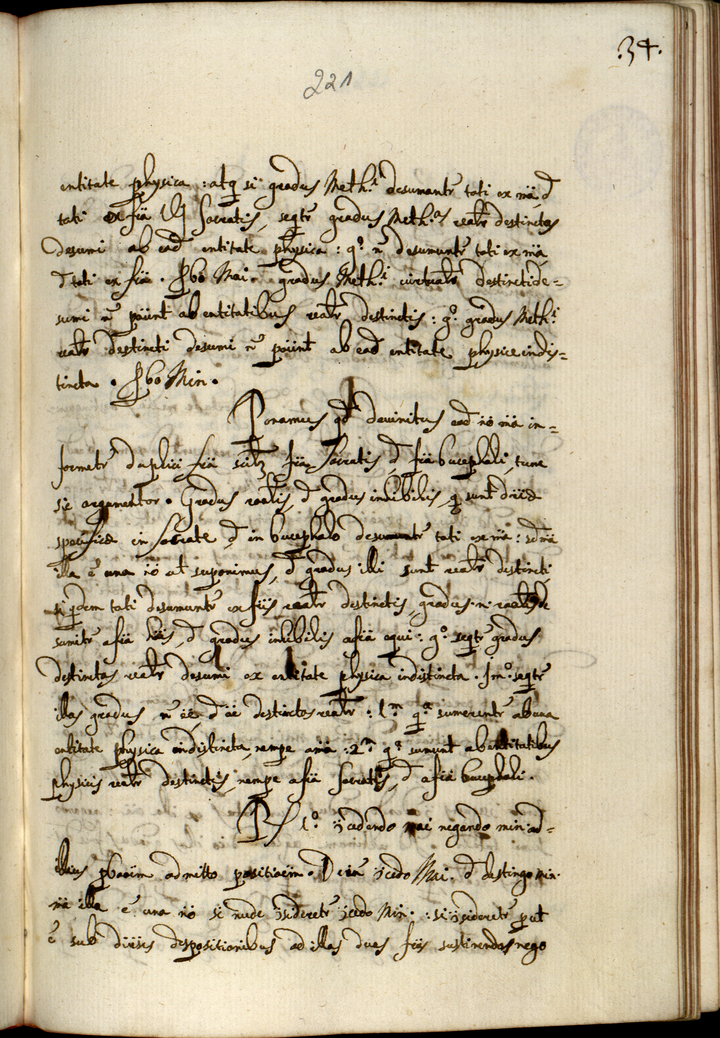 .34.
221
entitate physica : atq si gradus Meth.^s desumantr toti ex mã, d
toti ex fiã Socratis, seqtr gradus Meth.^os realr destinctos
desumi ab eãd entitate physica : g.^o ñ desumuntr toti ex mã
d toti ex fiã . Pbo Mai. gradus Meth.^s virtualr destincti de=
sumi ñ poũnt ab entitatibus realr destinctis : g.^o gradus Meth.^s
realr destincti desumi ñ poũnt ab eãd entitate physice indis=
tincta . Pbo Min.
Ponamus qd devinitus eãd nõ mã in=
formetr duplici fiã fiã Socratis, d fiã bucephali, tunc
sic argumentor . Gradus d gradus inibilis, q sunt
specifica in Socrate d in bucephalo desumuntr toti ex mã : sed mã
illa ẽ una nõ ut suponimus, d gradus illi sunt realr destincti,
si qdem toti desumuntr ex fiis realr destinctis, gradus
sumitr a fiã d gradus inibilis a fiã equi : g.^o seqtr gradus
destinctos realr desumi ex entitate physica indistincta . Im.^o seqtr
illos gradus ñ eẽ, d eẽ destinctos realr : 1.^m q.^a sumerentr ab una
entitate physica indistincta, nempe a mã : 2.^m q.^a sumunt ab entitatibus
physicis realr destinctis, nempe a fiã Socratis, d a fiã bucephali .
1.^o ɔcedendo mai negando min: ad=
illius pbaoim admitto positioem . ɔcedo Mai. d destingo min.
mã illa ẽ una nõ si nude ɔsideretr ɔcedo Min. : si ɔsideretr put
ẽ sub diisis despositionibus ad illas duas fiis sustinendas nego